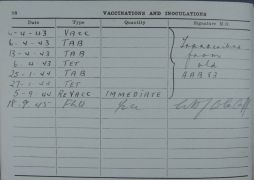 10 VACCINATIONS AND INOCULATIONS
Date Type Quantity Signature M.O.
-4-43 VACC
6-4-43 TAB Inoculations
13-4-43 TAB from
6-4-43 TET old
25-1-44 TAB AAB 83
27-1-44 TET
5-9-44 REVACC IMMEDIATE
18-9-45 1cc